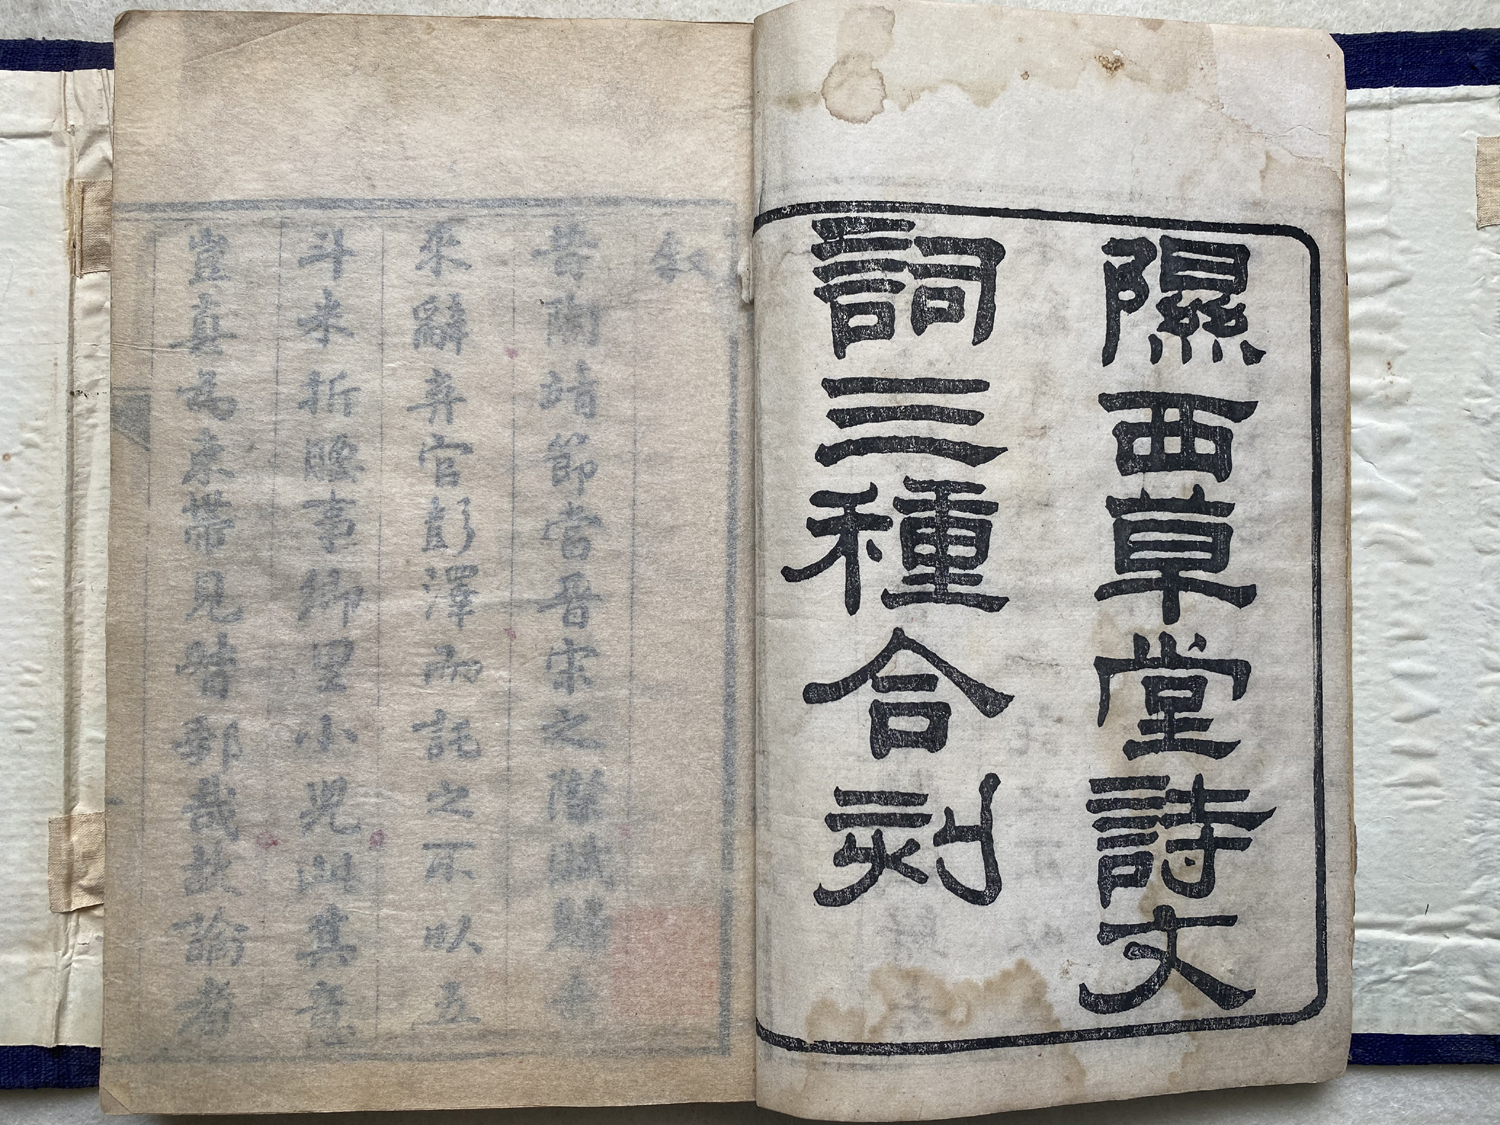 隰西草堂詩文
詞三種合刻
敘
昔陶靖節當晉宋之際賦歸去
來辭弃官彭澤而託之不以五
斗米折腰事鄉里小兒此其意
豈真爲束帶見督郵哉故論者